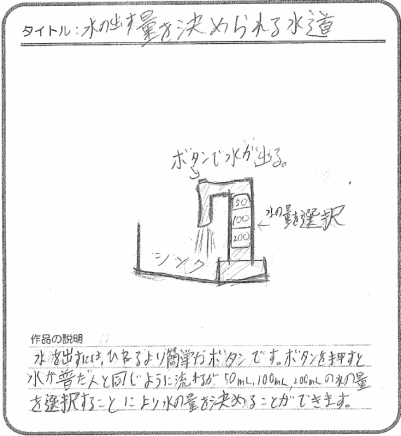 タイトル:水の出す量を決められる水道
ボタンで水が出る。
50
100
200
←水の量を選択
シンク
作品の説明
水を出すには、ひねるより簡単なボタンです。ボタンを押すと
水が普だんと同じように流れるが50mL,100mL,200mLの水の量
を選択することにより水の量を決めることができます。